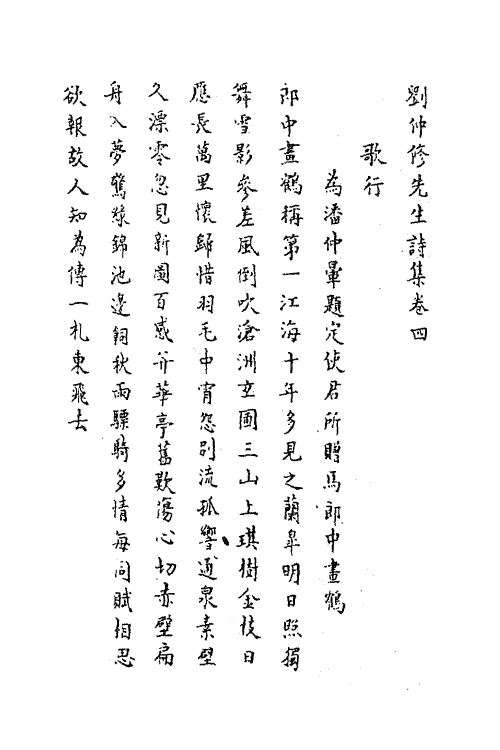 劉仲修先生詩集卷四
歌行
為潘仲暈題定使君所贈馬郎中畫鶴
郎中畫鶴稱第一江海十年多見之蘭皐明日照獨
舞雪影參差風倒吹滄洲玄圃三山上琪樹金枝日
應長萬里懷歸惜羽毛中宵怨別流孤響通泉素壁
久漂零忽見新圖百感并華亭舊歎傷心切赤壁扁
舟入夢驚漾錦池邊飼秋雨驃騎多情每同賦相思
欲報故人知為傳一札東飛去